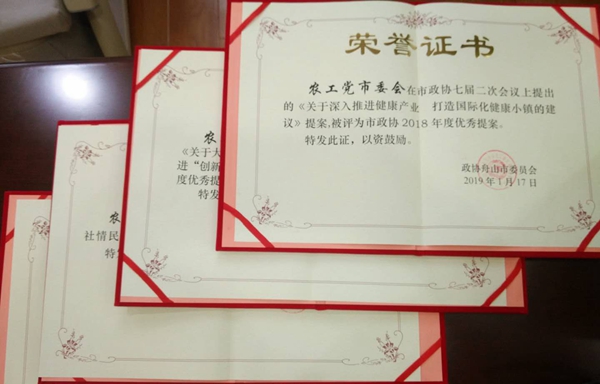 荣誉证书
农工党市委会在市政协七届二次会议上提出
的《关于深入推进健康产业 打造国际化健康小镇的建
议》提案,被评为市政协2018年度优秀提案。
特发此证,以资鼓励。
政协舟山市委员会
2019年1月17日
农
《关于大
进“创新
度优秀提
特发
农
社情民
特发